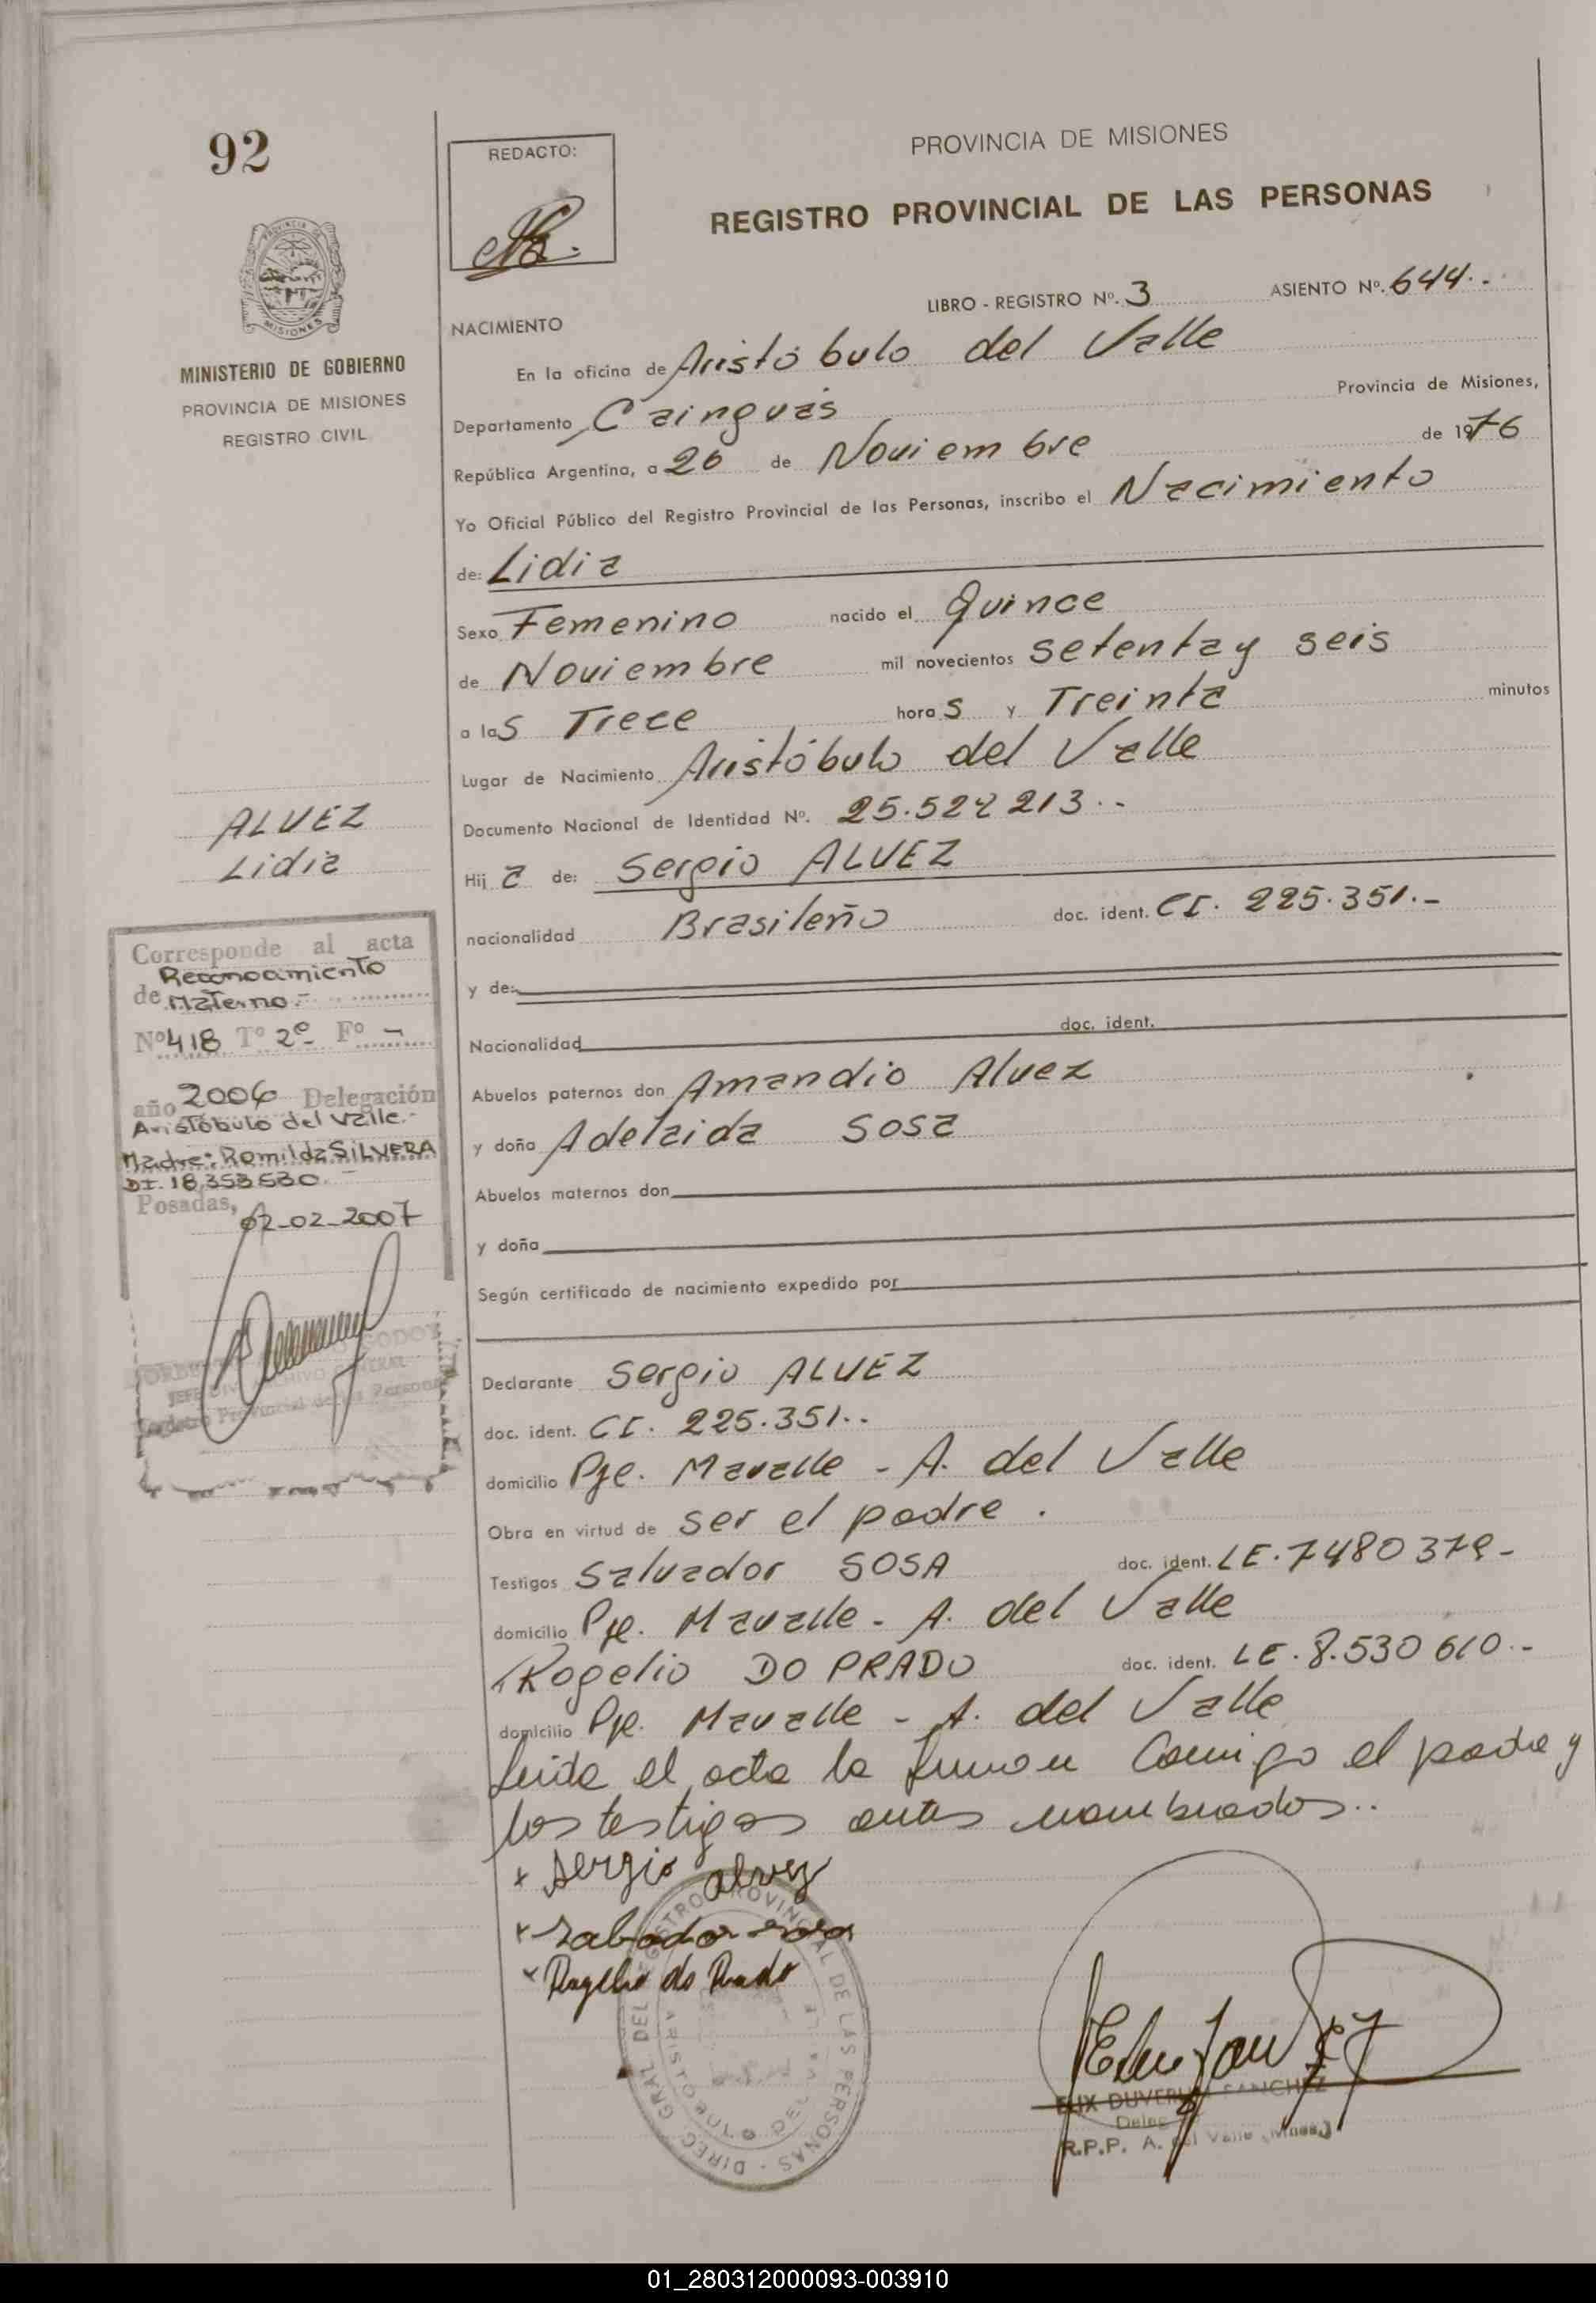 92
REDACTO:
PROVINCIA DE MISIONES
REGISTRO PROVINCIAL DE LAS PERSONAS
PROVINCIA DE
MISIONES
MINISTERIO DE GOBIERNO
PROVINCIA DE MISIONES
REGISTRO CIVIL
LIBRO - REGISTRO Nº. 3 ASIENTO Nº. 644.-
NACIMIENTO
En la oficina de Aristóbulo del Valle
Departamento Cainguás Provincia de Misiones,
República Argentina, a 26 de Noviembre de 1976
Yo Oficial Público del Registro Provincial de las Personas, inscribo el Nacimiento
de: Lidia
Sexo Femenino nacido el Quince
de Noviembre mil novecientos setenta y seis
a las Trece horas y Treinta minutos
Lugar de Nacimiento Aristóbulo del Valle
Documento Nacional de Identidad Nº. 25.522 213.-
Hija de: Sergio ALVEZ
nacionalidad Brasileño doc. ident. CI. 225.351.-
y de:
Nacionalidad doc. ident.
Abuelos paternos don Amandio Alvez
y doña Adelaida Sosa
Abuelos maternos don
y doña
Según certificado de nacimiento expedido por
Declarante Sergio ALVEZ
doc. ident. CI. 225.351..
domicilio Pje. Mavalle - A. del Valle
Obra en virtud de ser el padre.
Testigos Salvador SOSA doc. ident. LE. 7480379-
domicilio Pje. Mavalle - A. del Valle
Rogelio DO PRADO doc. ident. LE. 8.530 610.-
domicilio Pje. Mavalle - A. del Valle
Leida el acta la firman Conmigo el padre y
los testigos antes nombrados..
+ Sergio alvez
+ Salbador sosa
x Rogelio do Prado
DIREC. GRAL. DEL REGISTRO PROVINCIAL DE LAS PERSONAS
ARISTOBULO DEL
DUVER SANCHEZ
Deleg
R.P.P. A. del Valle (Mnes.)
ALVEZ
Lidia
Corresponde al acta
Reconocimiento
de Materno.-
Nº 418 Tº 2º Fº -
año 2006 Delegación
Aristóbulo del Valle.-
Madre: Romilda SILVERA
DI. 18.353.530.-
Posadas, 02-02-2007
GODOY
JEFE DIV. ARCHIVO GENERAL
Registro Provincial de las Personas
01_280312000093-003910